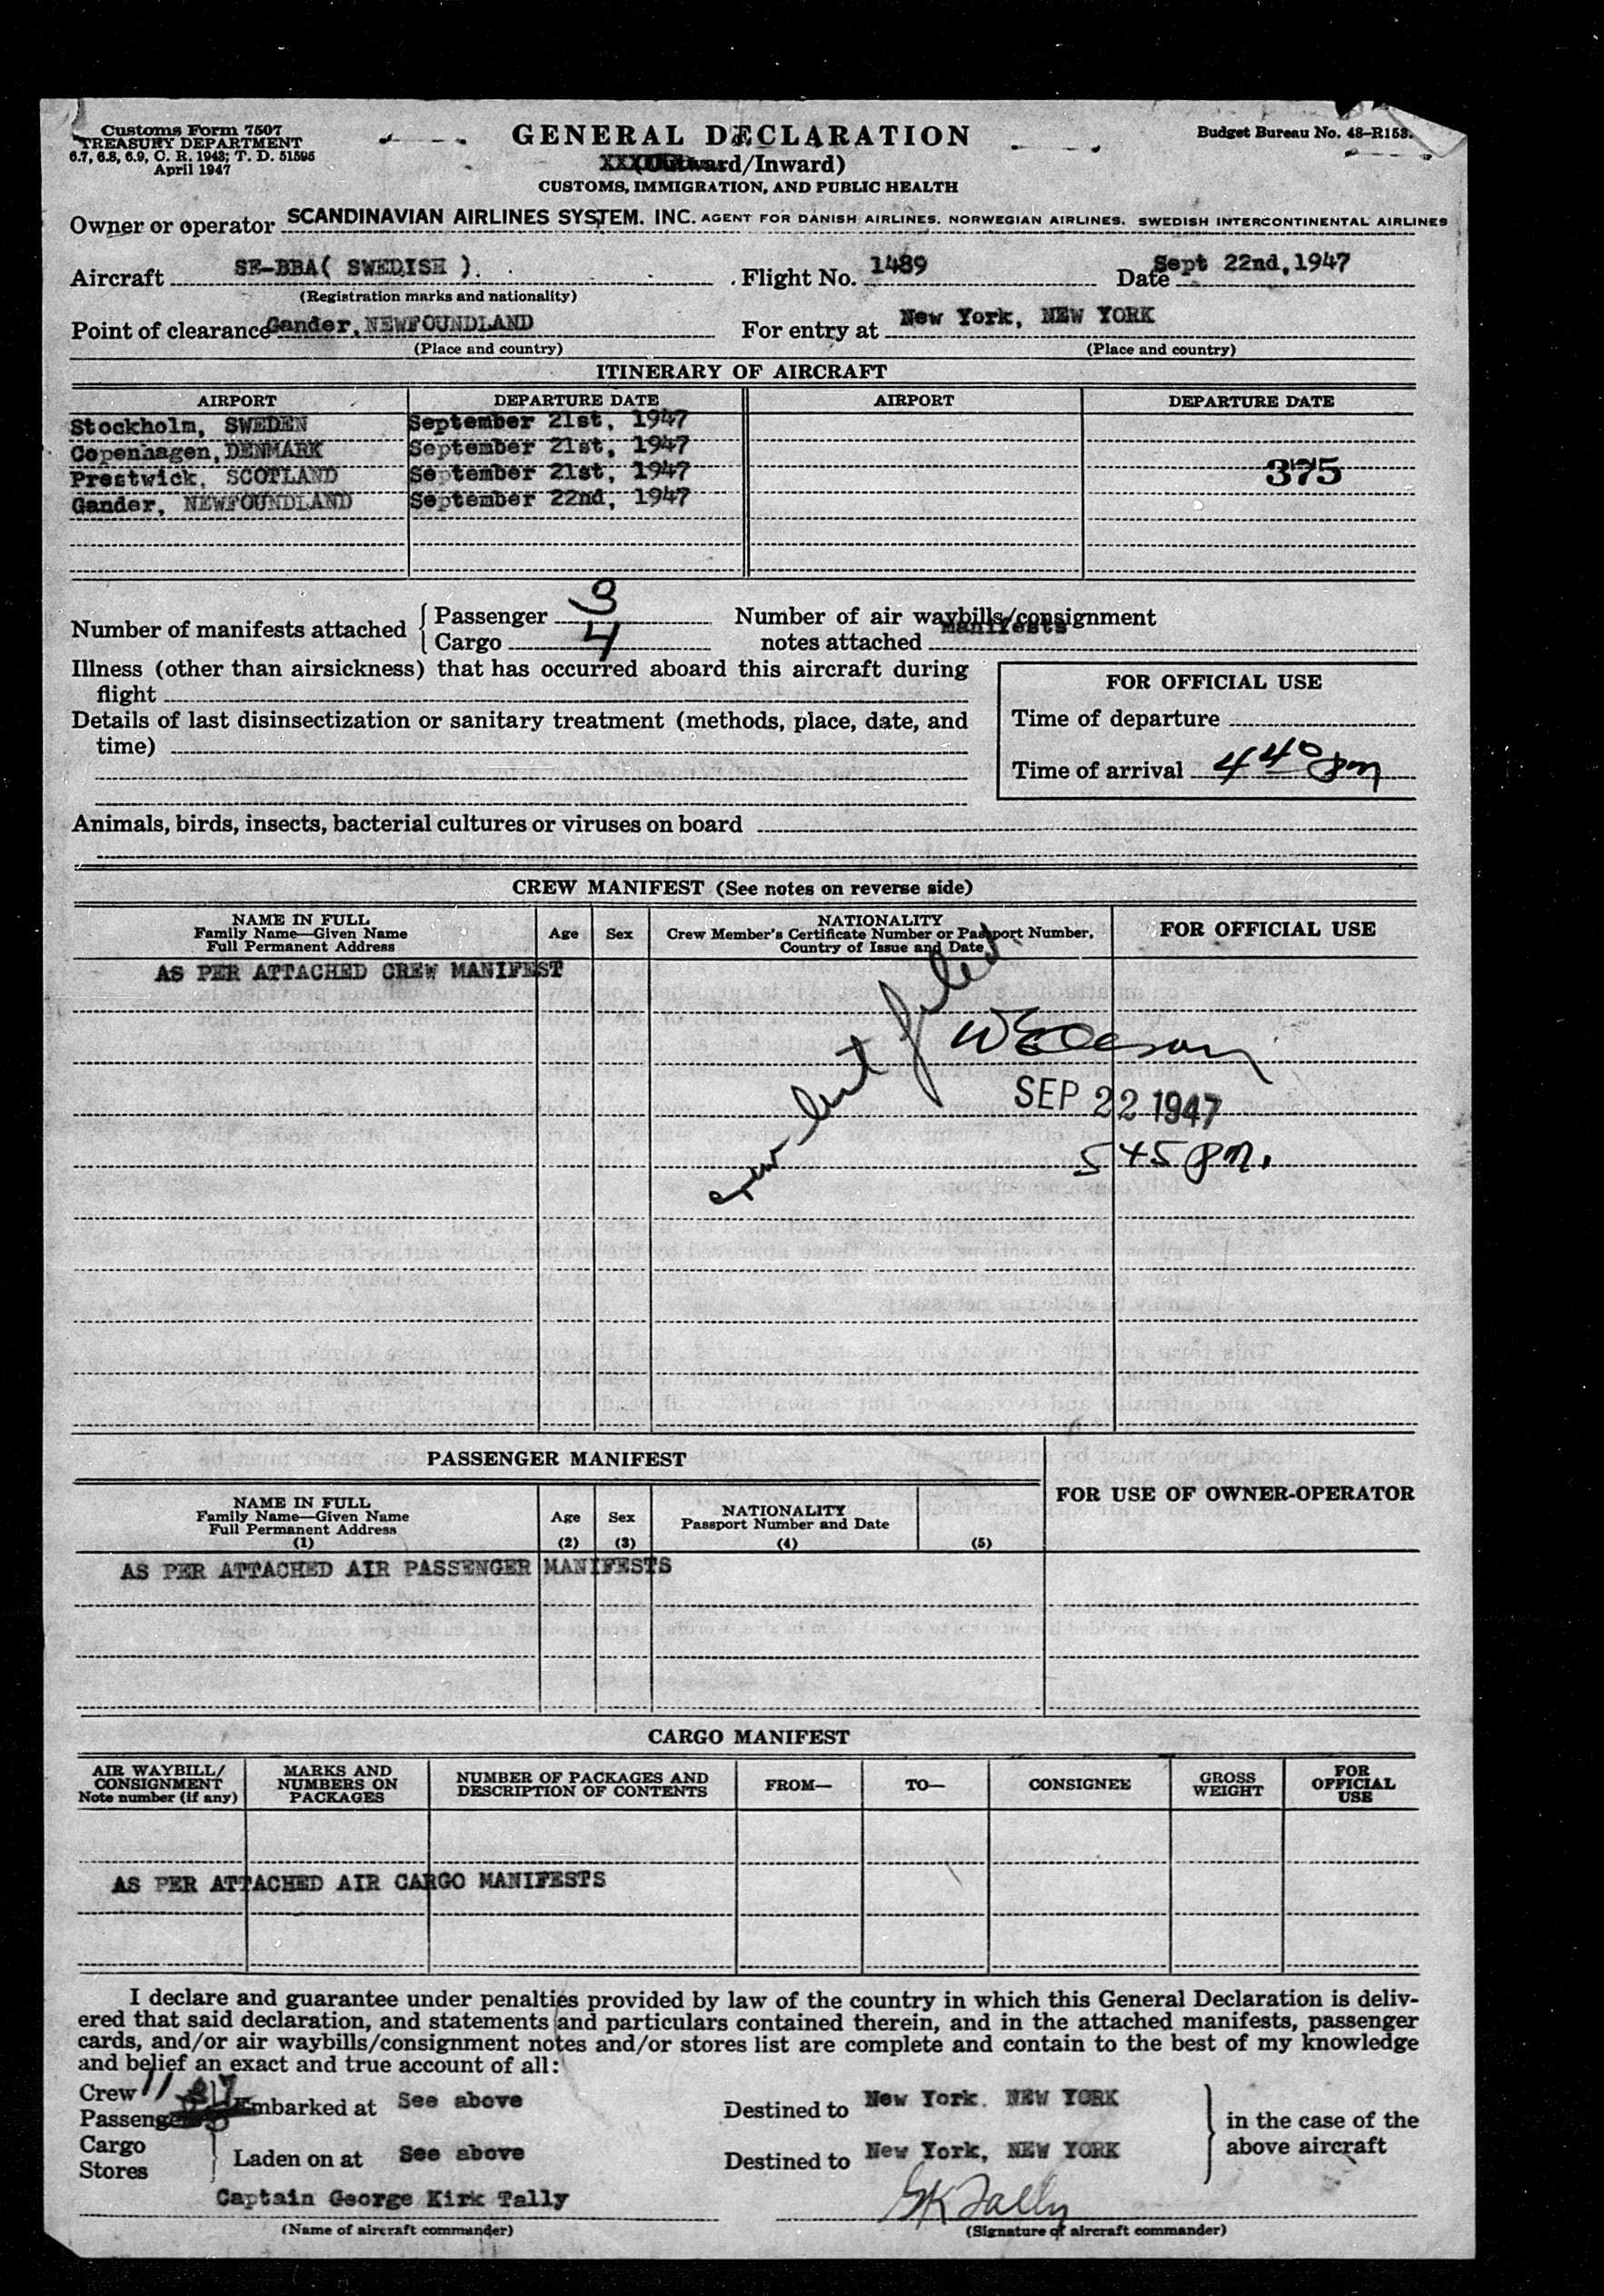 Customs Form 7507
TREASURY DEPARTMENT
6.7, 6.8, 6.9, C. R. 1943; T. D. 51595
April 1947
GENERAL DECLARATION
Budget Bureau No. 48-R153.
XXX(Outward/Inward)
CUSTOMS, IMMIGRATION, AND PUBLIC HEALTH
Owner or operator SCANDINAVIAN AIRLINES SYSTEM. INC. AGENT FOR DANISH AIRLINES. NORWEGIAN AIRLINES. SWEDISH INTERCONTINENTAL AIRLINES
Aircraft SE-BBA( SWEDISH ). Flight No. 1489 Date Sept 22nd,1947
(Registration marks and nationality)
Point of clearance Gander, NEWFOUNDLAND For entry at New York, NEW YORK
(Place and country) (Place and country)
ITINERARY OF AIRCRAFT
AIRPORT DEPARTURE DATE AIRPORT DEPARTURE DATE
Stockholm, SWEDEN September 21st, 1947
Copenhagen, DENMARK September 21st, 1947
Prestwick, SCOTLAND September 21st, 1947 375
Gander, NEWFOUNDLAND September 22nd, 1947
Number of manifests attached { Passenger 3 Number of air waybills/consignment
Cargo 4 notes attached Manifests
Illness (other than airsickness) that has occurred aboard this aircraft during
flight
Details of last disinsectization or sanitary treatment (methods, place, date, and
time)
FOR OFFICIAL USE
Time of departure
Time of arrival 4 40 pm
Animals, birds, insects, bacterial cultures or viruses on board
CREW MANIFEST (See notes on reverse side)
NAME IN FULL
Family Name—Given Name
Full Permanent Address
Age Sex
NATIONALITY
Crew Member's Certificate Number or Passport Number,
Country of Issue and Date
FOR OFFICIAL USE
AS PER ATTACHED CREW MANIFEST
crew list filed
SEP 22 1947
545 pm.
PASSENGER MANIFEST
FOR USE OF OWNER-OPERATOR
NAME IN FULL
Family Name—Given Name
Full Permanent Address
(1)
Age
(2)
Sex
(3)
NATIONALITY
Passport Number and Date
(4)
(5)
AS PER ATTACHED AIR PASSENGER MANIFESTS
CARGO MANIFEST
AIR WAYBILL/
CONSIGNMENT
Note number (if any)
MARKS AND
NUMBERS ON
PACKAGES
NUMBER OF PACKAGES AND
DESCRIPTION OF CONTENTS
FROM—
TO—
CONSIGNEE
GROSS
WEIGHT
FOR
OFFICIAL
USE
AS PER ATTACHED AIR CARGO MANIFESTS
I declare and guarantee under penalties provided by law of the country in which this General Declaration is deliv-
ered that said declaration, and statements and particulars contained therein, and in the attached manifests, passenger
cards, and/or air waybills/consignment notes and/or stores list are complete and contain to the best of my knowledge
and belief an exact and true account of all:
Crew 11
Passengers Embarked at See above Destined to New York. NEW YORK in the case of the
Cargo
Stores Laden on at See above Destined to New York, NEW YORK above aircraft
Captain George Kirk Tally GK Tally
(Name of aircraft commander) (Signature of aircraft commander)